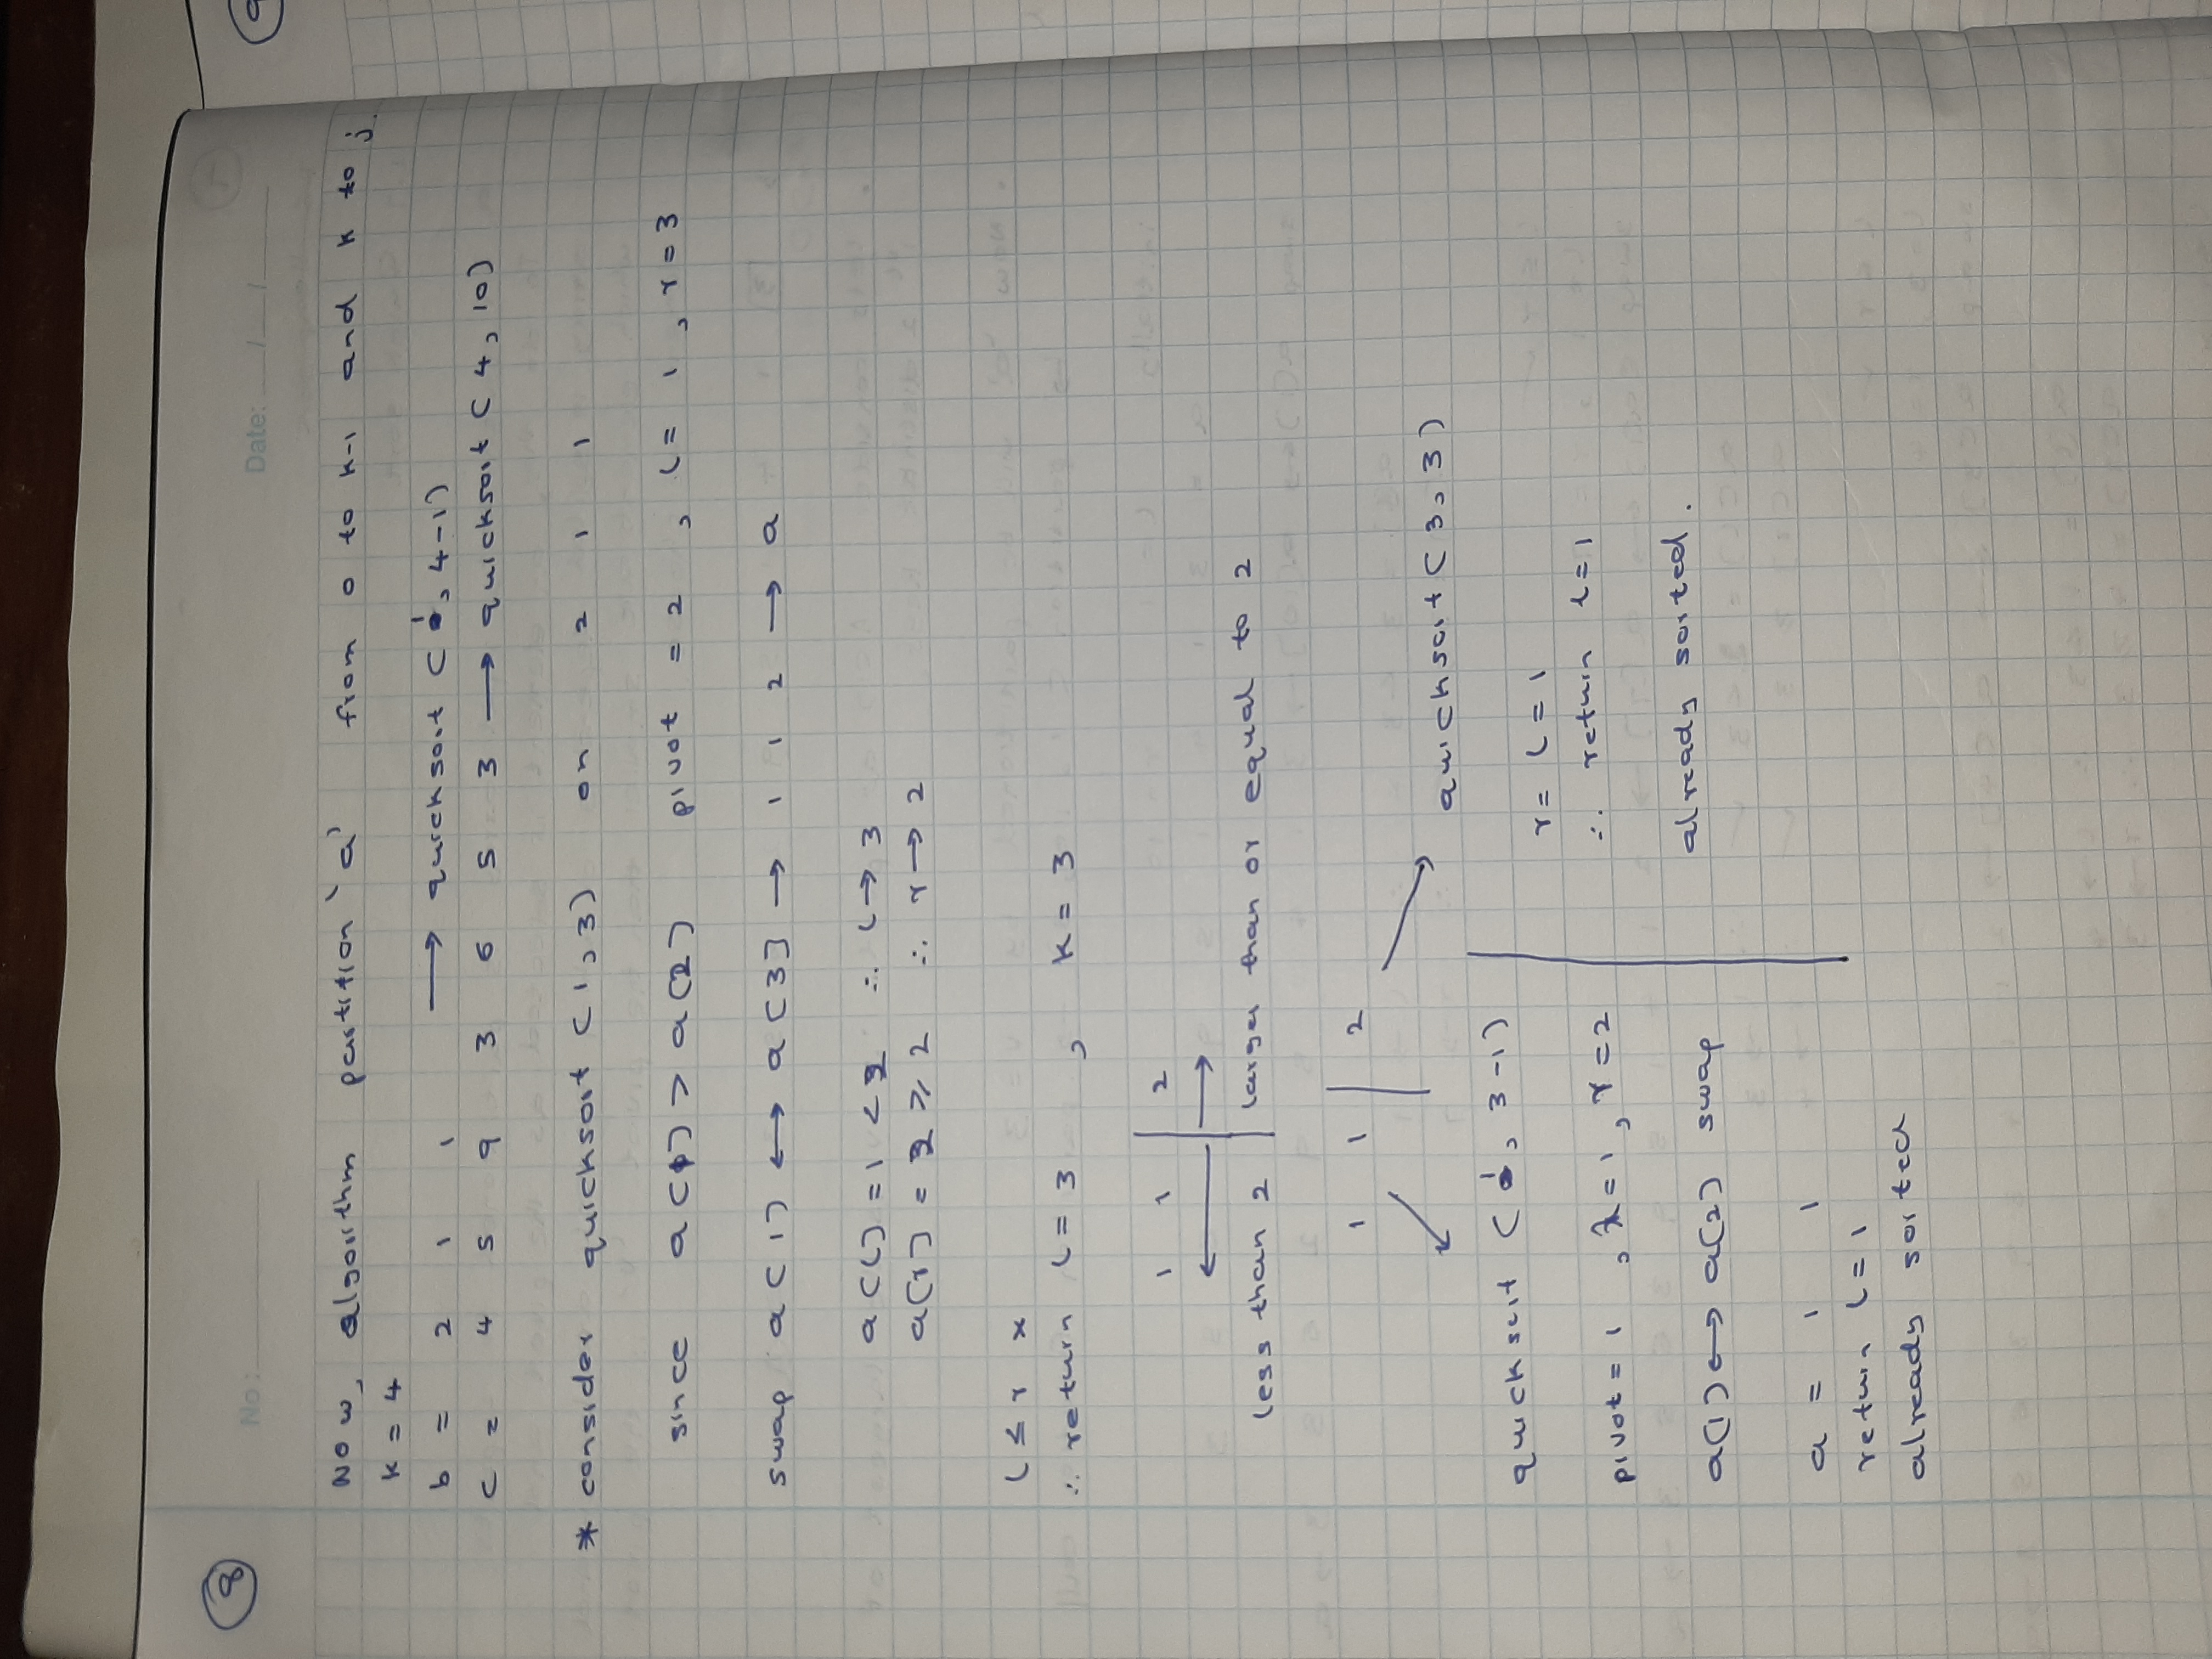 8
No: Date: / /
Now, algorithm partition 'a' from 0 to k-1 and k to j.
k = 4
b = 2 1 1 → quicksort (1, 4-1)
c = 4 5 9 3 6 5 3 → quicksort (4, 10)
* consider quicksort (1, 3) on 2 1 1
since a[1] > a[2] pivot = 2, l = 1, r = 3
swap a[1] ↔ a[3] → 1 1 2 → a
a[l] = 1 < 2 ∴ l → 3
a[r] = 2 ≥ 2 ∴ r → 2
l ≤ r ×
∴ return l = 3, k = 3
1 1 | 2
less than 2 | larger than or equal to 2
1 1 | 2
quicksort (3, 3)
quicksort (1, 3-1)
r = l = 1
∴ return l = 1
pivot = 1, l = 1, r = 2
already sorted.
a[1] ↔ a[2] swap
a = 1 1
return l = 1
already sorted